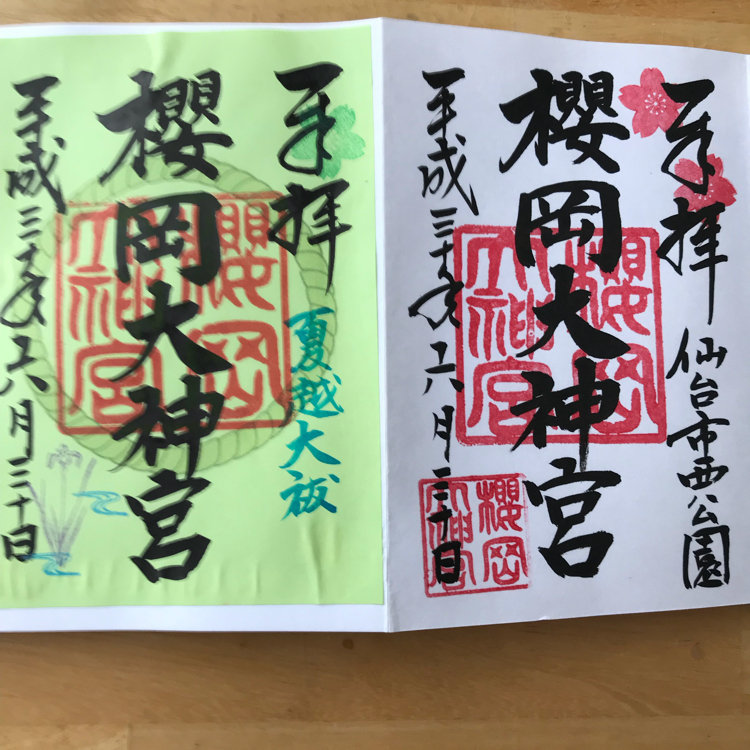 奉拝
仙台市西公園
櫻岡大神宮
櫻岡
大神宮
平成三十年六月三十日
櫻岡
大神宮
奉拝
夏越大祓
櫻岡大神宮
櫻岡
大神宮
平成三十年六月三十日